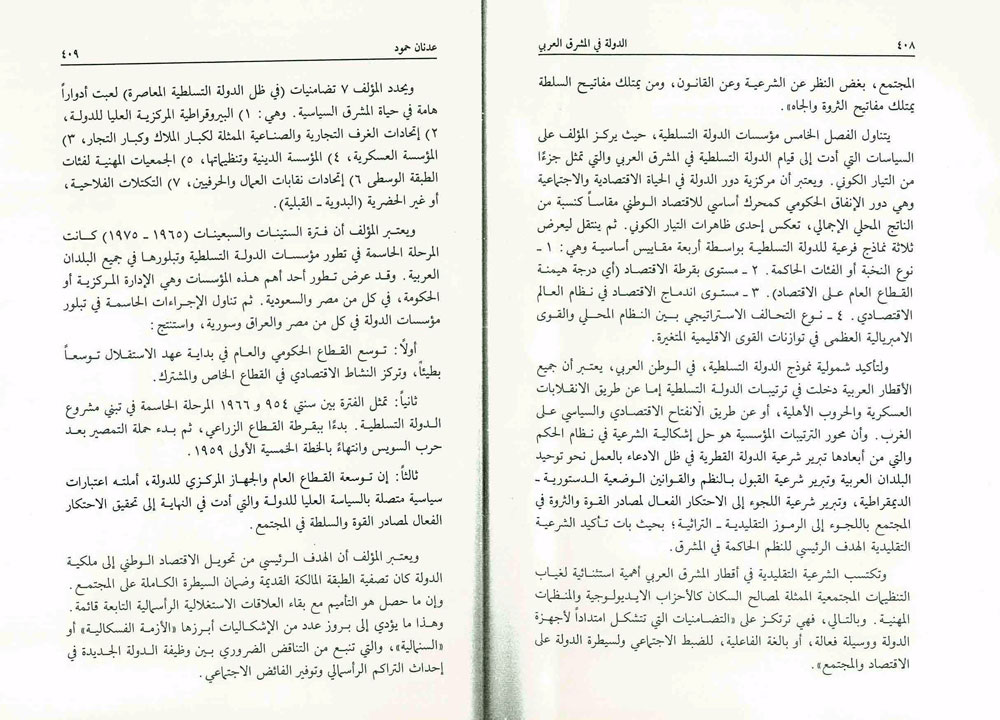 ٤٠٨
الدولة في المشرق العربي
المجتمع، بغض النظر عن الشرعية وعن القانون، ومن يمتلك مفاتيح السلطة
يمتلك مفاتيح الثروة والجاه».
يتناول الفصل الخامس مؤسسات الدولة التسلطية، حيث يركز المؤلف على
السياسات التي أدت إلى قيام الدولة التسلطية في المشرق العربي والتي تمثل جزءًا
من التيار الكوني. ويعتبر أن مركزية دور الدولة في الحياة الاقتصادية والاجتماعية
وهي دور الإنفاق الحكومي كمحرك أساسي للاقتصاد الوطني مقاساً كنسبة من
الناتج المحلي الإجمالي، تعكس إحدى ظاهرات التيار الكوني. ثم ينتقل ليعرض
ثلاثة نماذج فرعية للدولة التسلطية بواسطة أربعة مقاييس أساسية وهي: ١ ـ
نوع النخبة أو الفئات الحاكمة. ٢ ـ مستوى بقرطة الاقتصاد (أي درجة هيمنة
القطاع العام على الاقتصاد). ٣ ـ مستوى اندماج الاقتصاد في نظام العالم
الاقتصادي. ٤ ـ نوع التحالف الاستراتيجي بين النظام المحلي والقوى
الامبريالية العظمى في توازنات القوى الاقليمية المتغيرة.
ولتأكيد شمولية نموذج الدولة التسلطية، في الوطن العربي، يعتبر أن جميع
الأقطار العربية دخلت في ترتيبات الدولة التسلطية إما عن طريق الانقلابات
العسكرية والحروب الأهلية، أو عن طريق الانفتاح الاقتصادي والسياسي على
الغرب. وأن محور الترتيبات المؤسسية هو حل إشكالية الشرعية في نظام الحكم
والتي من أبعادها تبرير شرعية الدولة القطرية في ظل الادعاء بالعمل نحو توحيد
البلدان العربية وتبرير شرعية القبول بالنظم والقوانين الوضعية الدستورية ـ
الديمقراطية، وتبرير شرعية اللجوء إلى الاحتكار الفعال لمصادر القوة والثروة في
المجتمع باللجوء إلى الرموز التقليدية ـ التراثية؛ بحيث بات تأكيد الشرعية
التقليدية الهدف الرئيسي للنظم الحاكمة في المشرق.
وتكتسب الشرعية التقليدية في أقطار المشرق العربي أهمية استثنائية لغياب
التنظيمات المجتمعية الممثلة لمصالح السكان كالأحزاب الايديولوجية والمنظمات
المهنية. وبالتالي، فهي ترتكز على «التضامنيات التي تتشكل امتداداً لأجهزة
الدولة ووسيلة فعالة، أو بالغة الفاعلية، للضبط الاجتماعي ولسيطرة الدولة على
الاقتصاد والمجتمع».
عدنان حمود
٤٠٩
ويحدد المؤلف ٧ تضامنيات (في ظل الدولة التسلطية المعاصرة) لعبت أدواراً
هامة في حياة المشرق السياسية. وهي: ١) البيروقراطية المركزية العليا للدولة،
٢) إتحادات الغرف التجارية والصناعية الممثلة لكبار الملاك وكبار التجار، ٣)
المؤسسة العسكرية، ٤) المؤسسة الدينية وتنظيماتها، ٥) الجمعيات المهنية لفئات
الطبقة الوسطى ٦) إتحادات نقابات العمال والحرفيين، ٧) التكتلات الفلاحية،
أو غير الحضرية (البدوية ـ القبلية).
ويعتبر المؤلف أن فترة الستينات والسبعينات (١٩٦٥ ـ ١٩٧٥) كانت
المرحلة الحاسمة في تطور مؤسسات الدولة التسلطية وتبلورها في جميع البلدان
العربية. وقد عرض تطور أحد أهم هذه المؤسسات وهي الإدارة المركزية أو
الحكومة، في كل من مصر والسعودية. ثم تناول الإجراءات الحاسمة في تبلور
مؤسسات الدولة في كل من مصر والعراق وسورية، واستنتج:
أولاً: توسع القطاع الحكومي والعام في بداية عهد الاستقلال توسعاً
بطيئاً، وتركز النشاط الاقتصادي في القطاع الخاص والمشترك.
ثانياً: تمثل الفترة بين سنتي ٩٥٤ و ١٩٦٦ المرحلة الحاسمة في تبني مشروع
الدولة التسلطية. بدءًا ببقرطة القطاع الزراعي، ثم بدء حملة التمصير بعد
حرب السويس وانتهاءً بالخطة الخمسية الأولى ١٩٥٩.
ثالثاً: إن توسعة القطاع العام والجهاز المركزي للدولة، أملته اعتبارات
سياسية متصلة بالسياسة العليا للدولة والتي أدت في النهاية إلى تحقيق الاحتكار
الفعال لمصادر القوة والسلطة في المجتمع.
ويعتبر المؤلف أن الهدف الرئيسي من تحويل الاقتصاد الوطني إلى ملكية
الدولة كان تصفية الطبقة المالكة القديمة وضمان السيطرة الكاملة على المجتمع.
وإن ما حصل هو التأميم مع بقاء العلاقات الاستغلالية الرأسمالية التابعة قائمة.
وهذا ما يؤدي إلى بروز عدد من الإشكاليات أبرزها «الأزمة الفسكالية» أو
«السنمالية»، والتي تنبع من التناقض الضروري بين وظيفة الدولة الجديدة في
إحداث التراكم الرأسمالي وتوفير الفائض الاجتماعي.